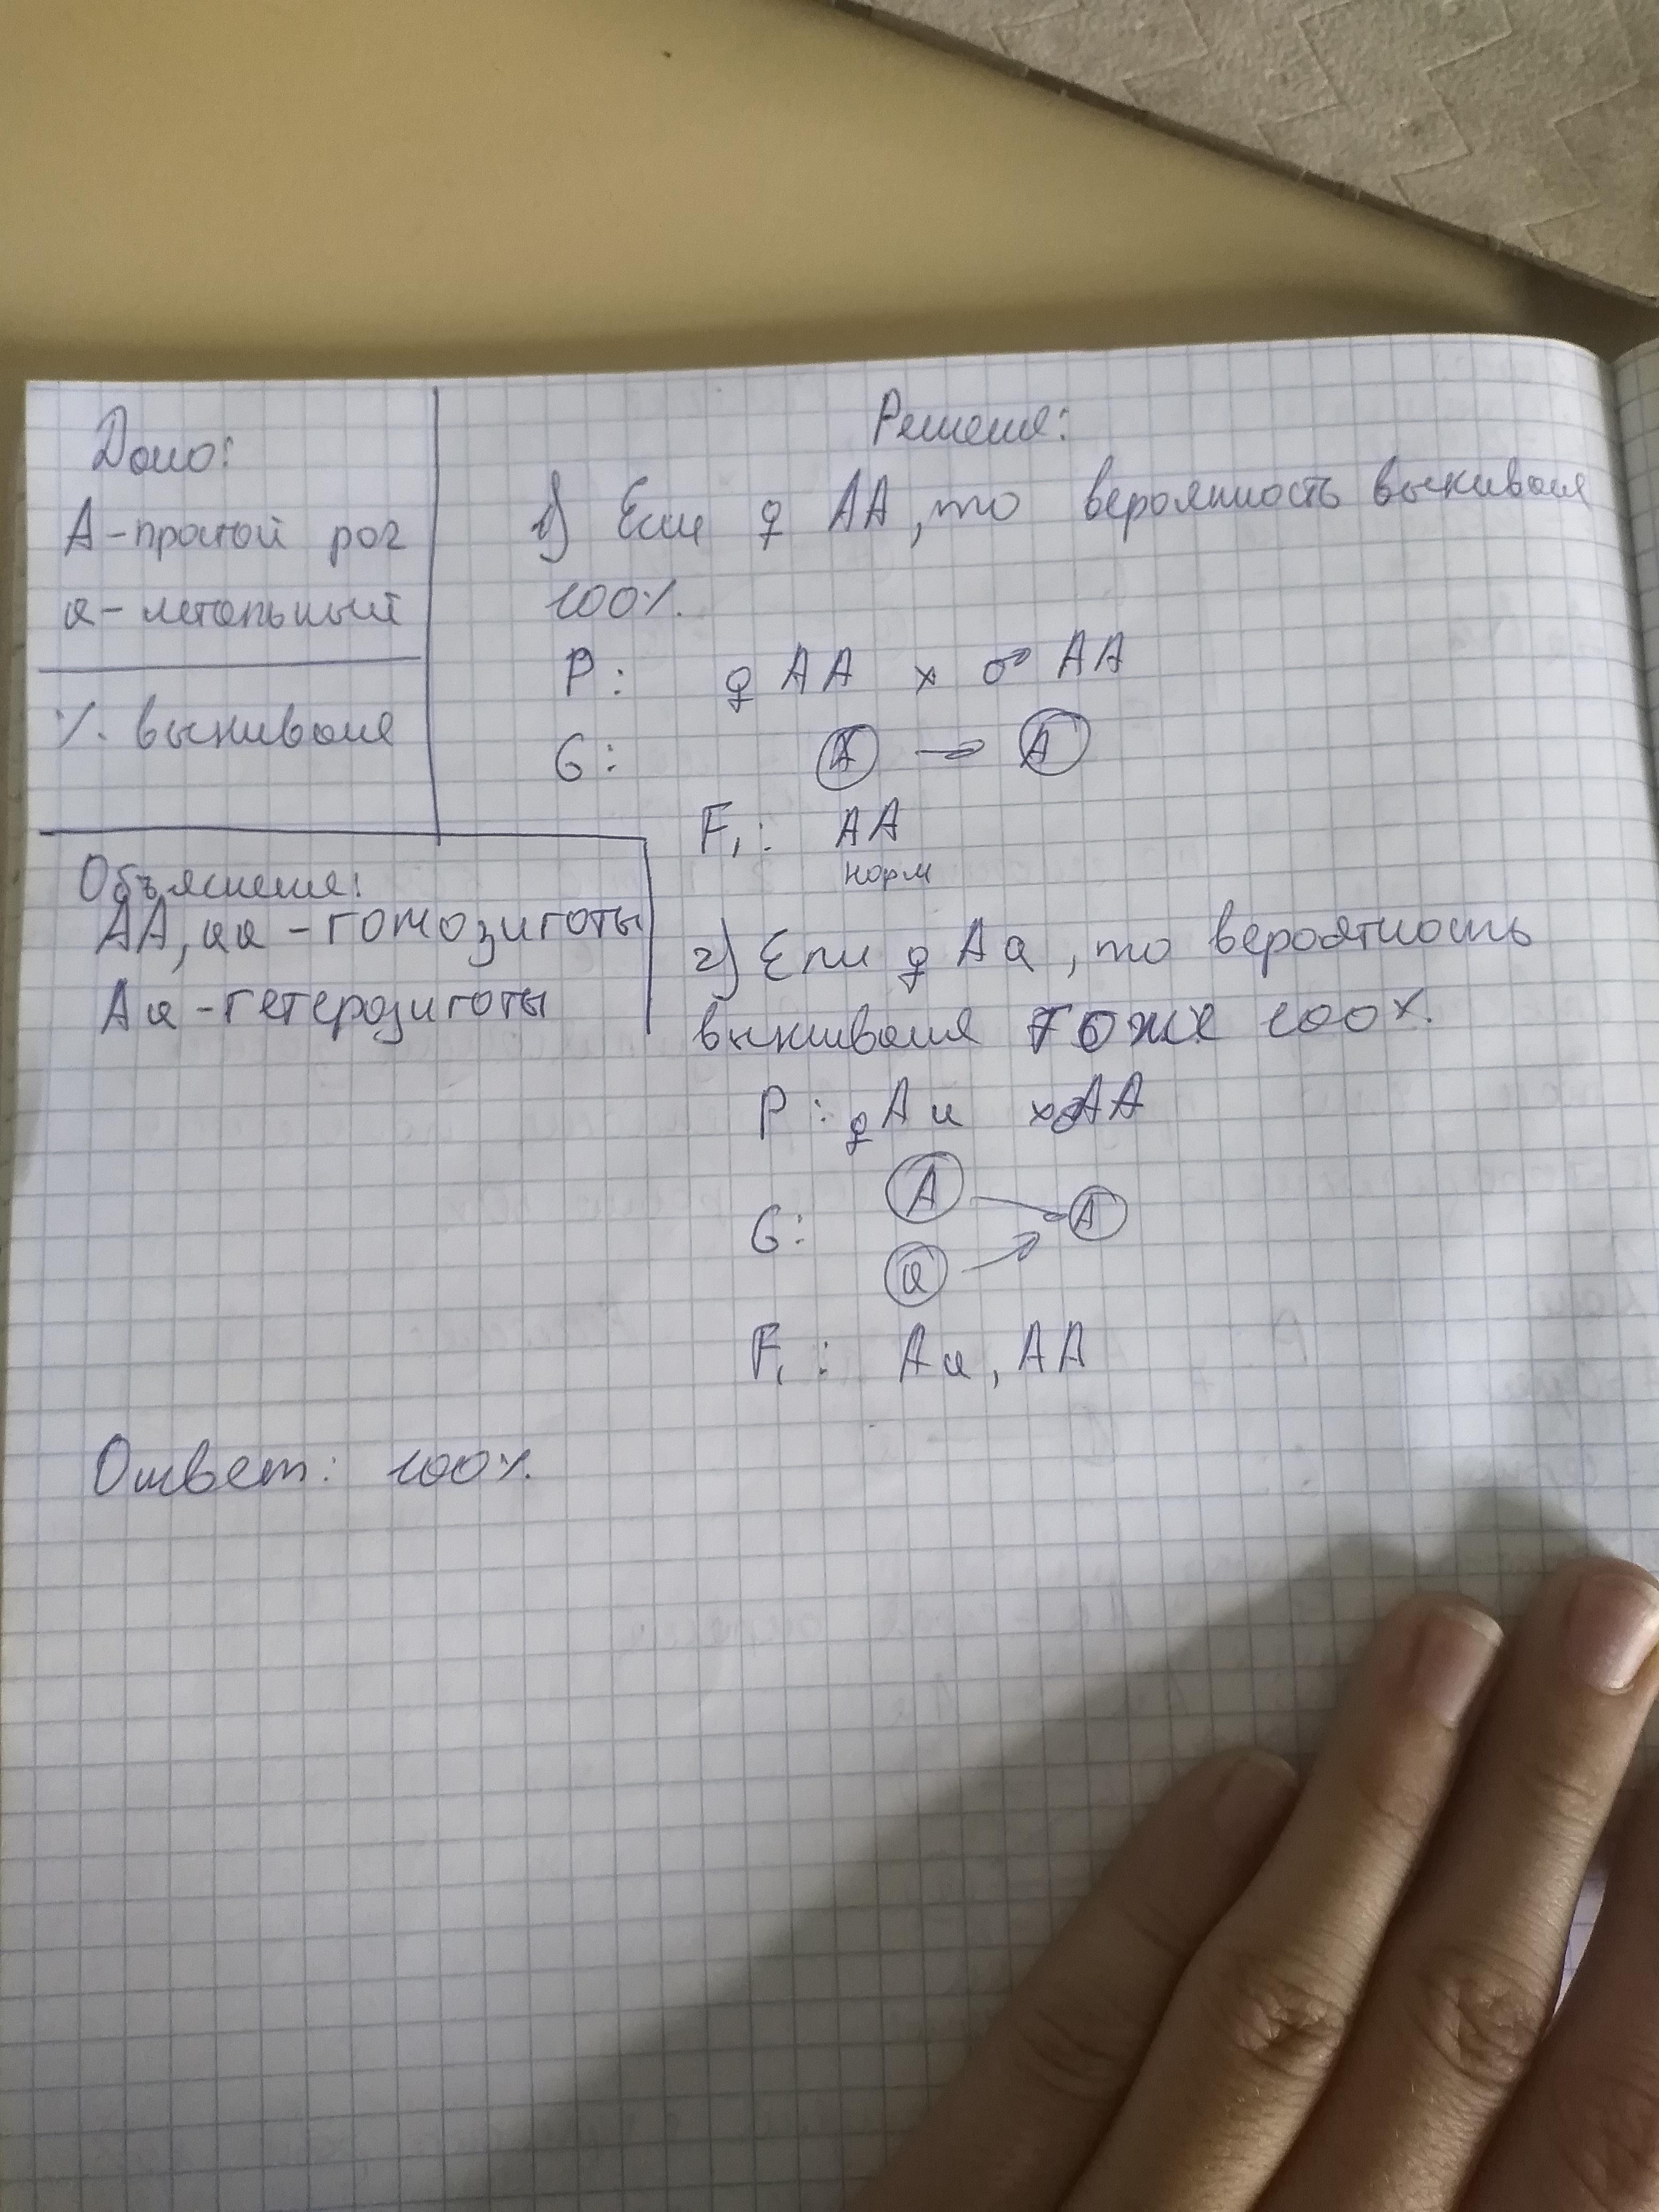 Дано:
А - простой рог
а - летальный
% выживания
Объяснения:
АА, аа - гомозиготы
Аа - гетерозиготы
Решение:
1) Если ♀ АА, то вероятность выживания
100%.
P: ♀ АА x ♂ АА
G: А → А
F₁: АА
норм
2) Если ♀ Аа, то вероятность
выживания тоже 100%.
P: ♀ Аа x ♂ АА
G: А → А
а →
F₁: Аа, АА
Ответ: 100%.